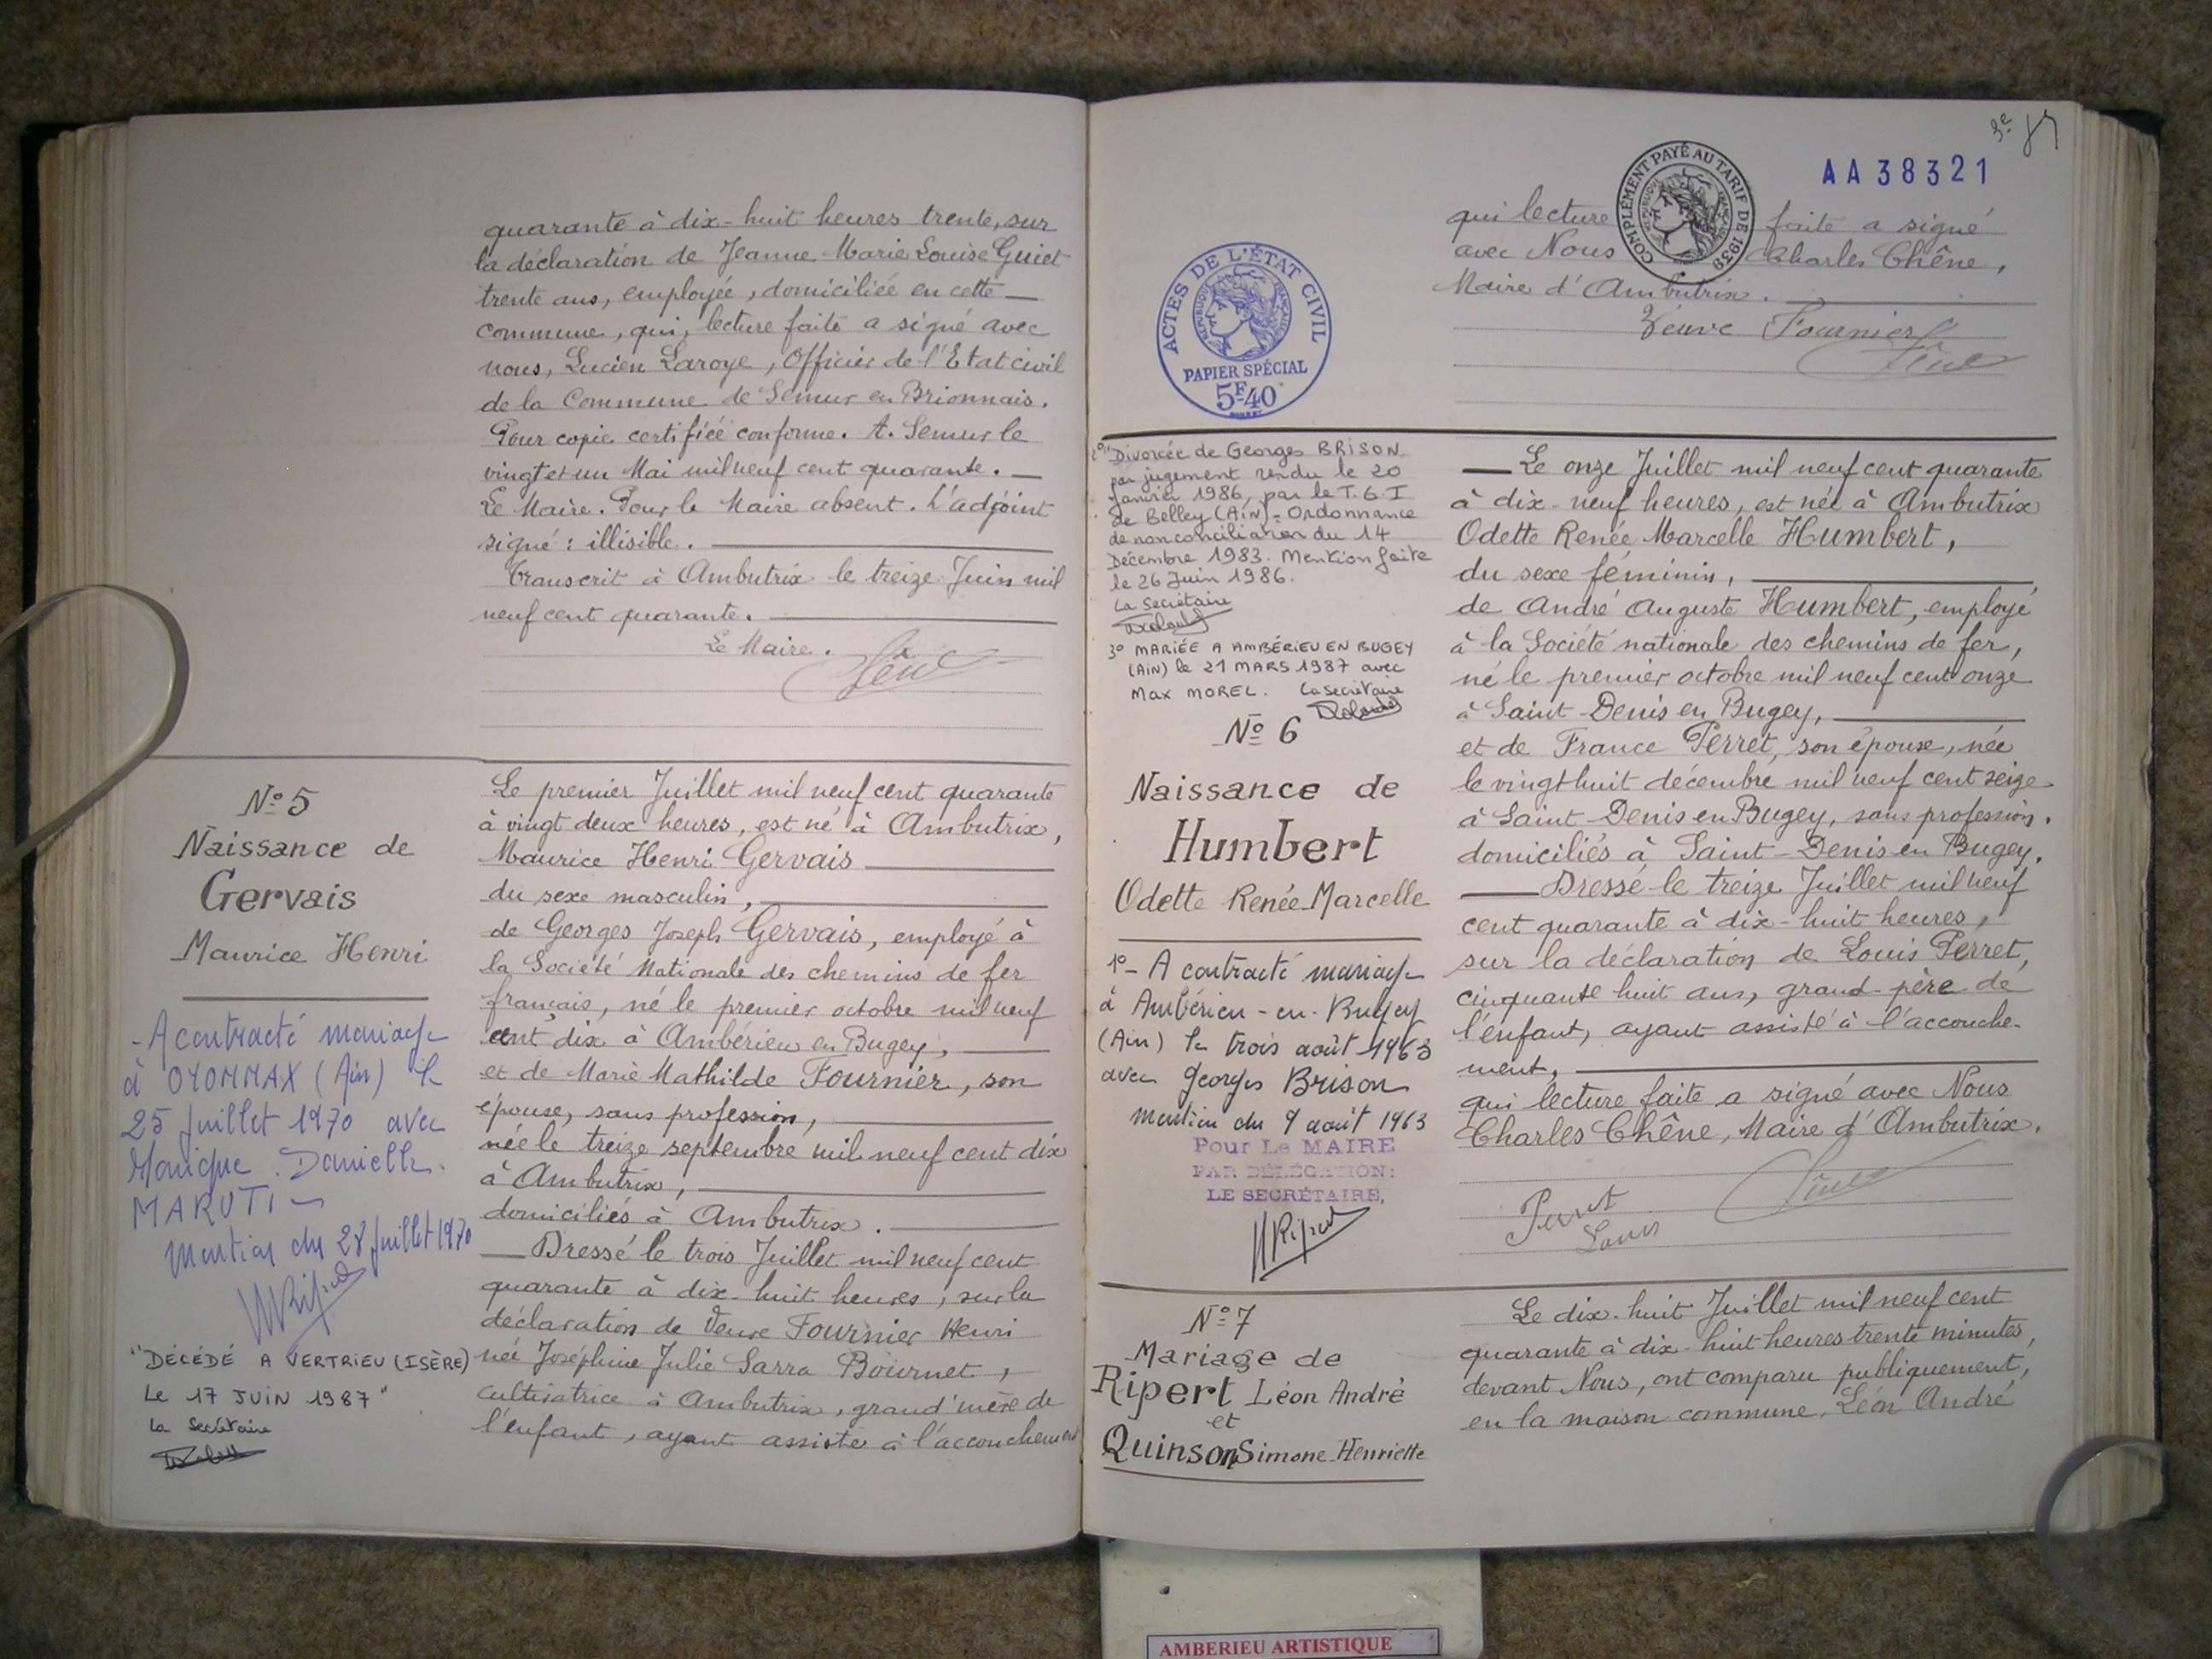 quarante à dix-huit heures trente, sur
la déclaration de Jeanne Marie Louise Guiet
trente ans, employée, domiciliée en cette
commune, qui, lecture faite a signé avec
nous, Lucien Laroye, Officier de l'Etat civil
de la Commune de Semur en Brionnais.
Pour copie certifiée conforme. A. Semur le
vingt et un Mai mil neuf cent quarante.
Le Maire. Pour le Maire absent. L'adjoint
signé : illisible.
Transcrit à Ambutrix le treize Juin mil
neuf cent quarante.
Le Maire.
N° 5
Naissance de
Gervais
Maurice Henri
- A contracté mariage
à OYONNAX (Ain) le
25 Juillet 1970 avec
Monique Danielle
MARUTI
Mention du 28 Juillet 1970
"DÉCÉDÉ A VERTRIEU (ISÈRE)
Le 17 JUIN 1987"
La Secrétaire
Le premier Juillet mil neuf cent quarante
à vingt deux heures, est né à Ambutrix,
Maurice Henri Gervais
du sexe masculin,
de Georges Joseph Gervais, employé à
la Société Nationale des chemins de fer
français, né le premier octobre mil neuf
cent dix à Ambérieu en Bugey,
et de Marie Mathilde Fournier, son
épouse, sans profession,
née le treize septembre mil neuf cent dix
à Ambutrix,
domiciliés à Ambutrix.
Dressé le trois Juillet mil neuf cent
quarante à dix-huit heures, sur la
déclaration de Veuve Fournier Henri
née Joséphine Julie Sarra Bournet,
cultivatrice à Ambutrix, grand'mère de
l'enfant, ayant assisté à l'accouchement
3e
AA38321
COMPLÉMENT PAYÉ AU TARIF DE 1939
RÉPUBLIQUE FRANÇAISE
qui lecture faite a signé
avec Nous Charles Chêne,
Maire d'Ambutrix.
Veuve Fournier
Chêne
ACTES DE L'ÉTAT CIVIL
RÉPUBLIQUE FRANÇAISE
PAPIER SPÉCIAL
5F40
2° "Divorcée de Georges BRISON
par jugement rendu le 20
Janvier 1986, par le T.G.I
de Belley (Ain) - Ordonnance
de non conciliation du 14
Décembre 1983. Mention faite
le 26 Juin 1986.
La Secrétaire
3° MARIÉE A AMBÉRIEU EN BUGEY
(AIN) le 21 MARS 1987 avec
Max MOREL. La Secrétaire
N° 6
Naissance de
Humbert
Odette Renée Marcelle
1° - A contracté mariage
à Ambérieu-en-Bugey
(Ain) le trois août 1963
avec Georges Brison
mention du 9 août 1963
Pour Le MAIRE
PAR DÉLÉGATION:
LE SECRÉTAIRE,
Le onze Juillet mil neuf cent quarante
à dix-neuf heures, est née à Ambutrix
Odette Renée Marcelle Humbert,
du sexe féminin,
de André Auguste Humbert, employé
à la Société nationale des chemins de fer,
né le premier octobre mil neuf cent onze
à Saint-Denis en Bugey,
et de France Perret, son épouse, née
le vingt huit décembre mil neuf cent seize
à Saint-Denis en Bugey, sans profession.
domiciliés à Saint-Denis en Bugey.
Dressé le treize Juillet mil neuf
cent quarante à dix-huit heures,
sur la déclaration de Louis Perret,
cinquante huit ans, grand-père de
l'enfant, ayant assisté à l'accouche-
ment,
qui lecture faite a signé avec Nous
Charles Chêne, Maire d'Ambutrix.
Perret
Louis
Chêne
N° 7
Mariage de
Ripert Léon André
et
Quinson Simone Henriette
Le dix-huit Juillet mil neuf cent
quarante à dix-huit heures trente minutes,
devant Nous, ont comparu publiquement,
en la maison commune, Léon André
AMBERIEU ARTISTIQUE